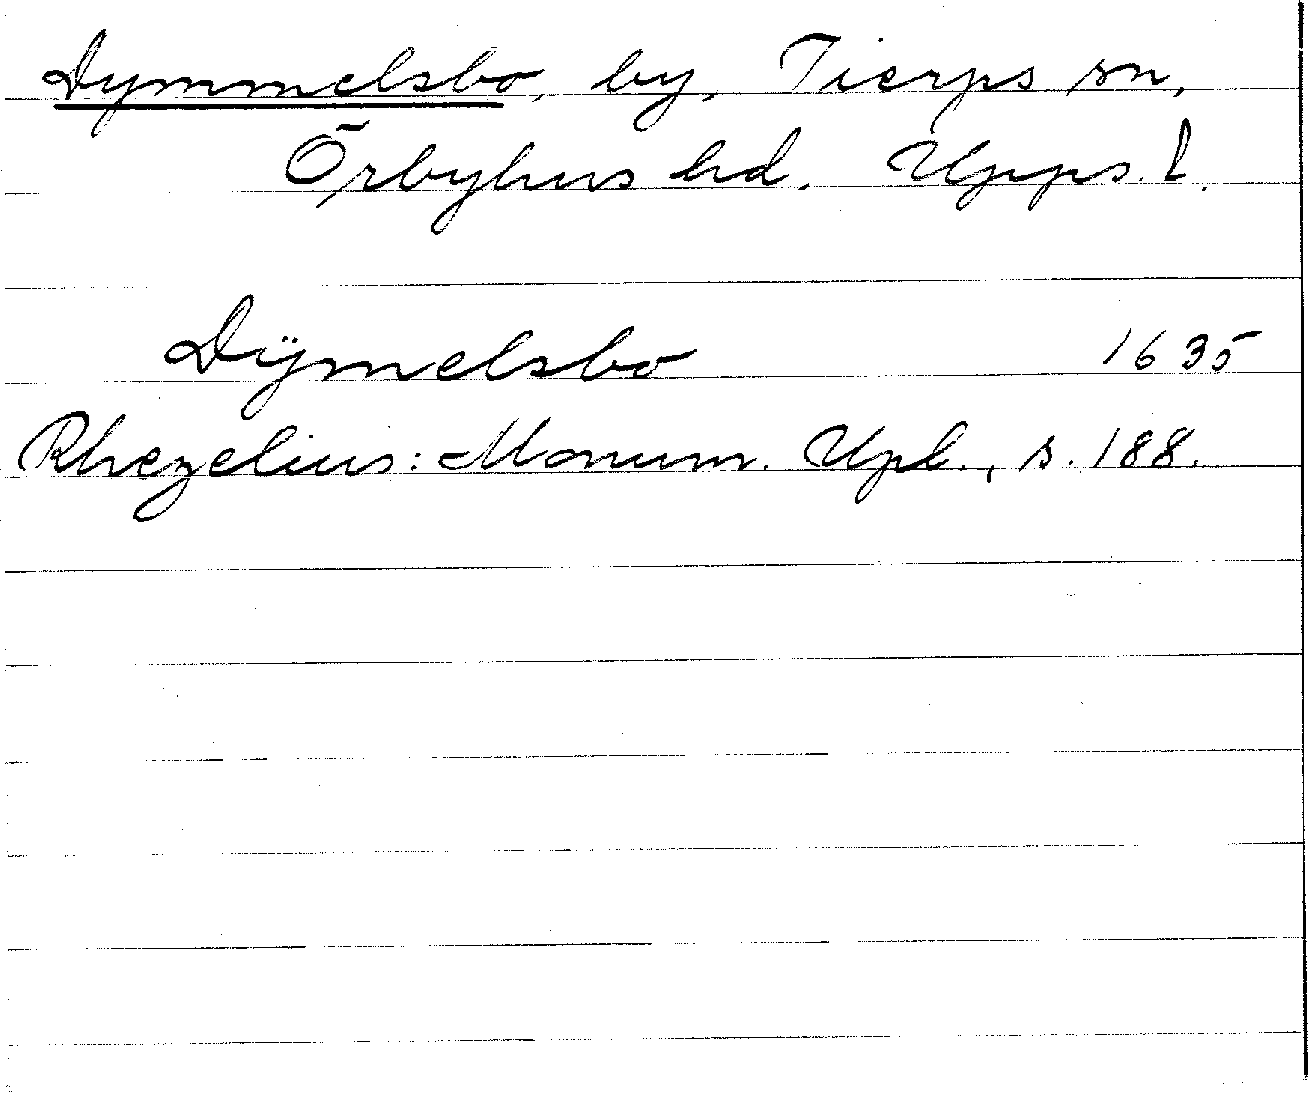 Dymmelsbo, by, Tierps sn,
Örbyhus hd. Upps. l.
Dÿmelsbo 1635
Rhezelius: Monum. Upl., s. 188.